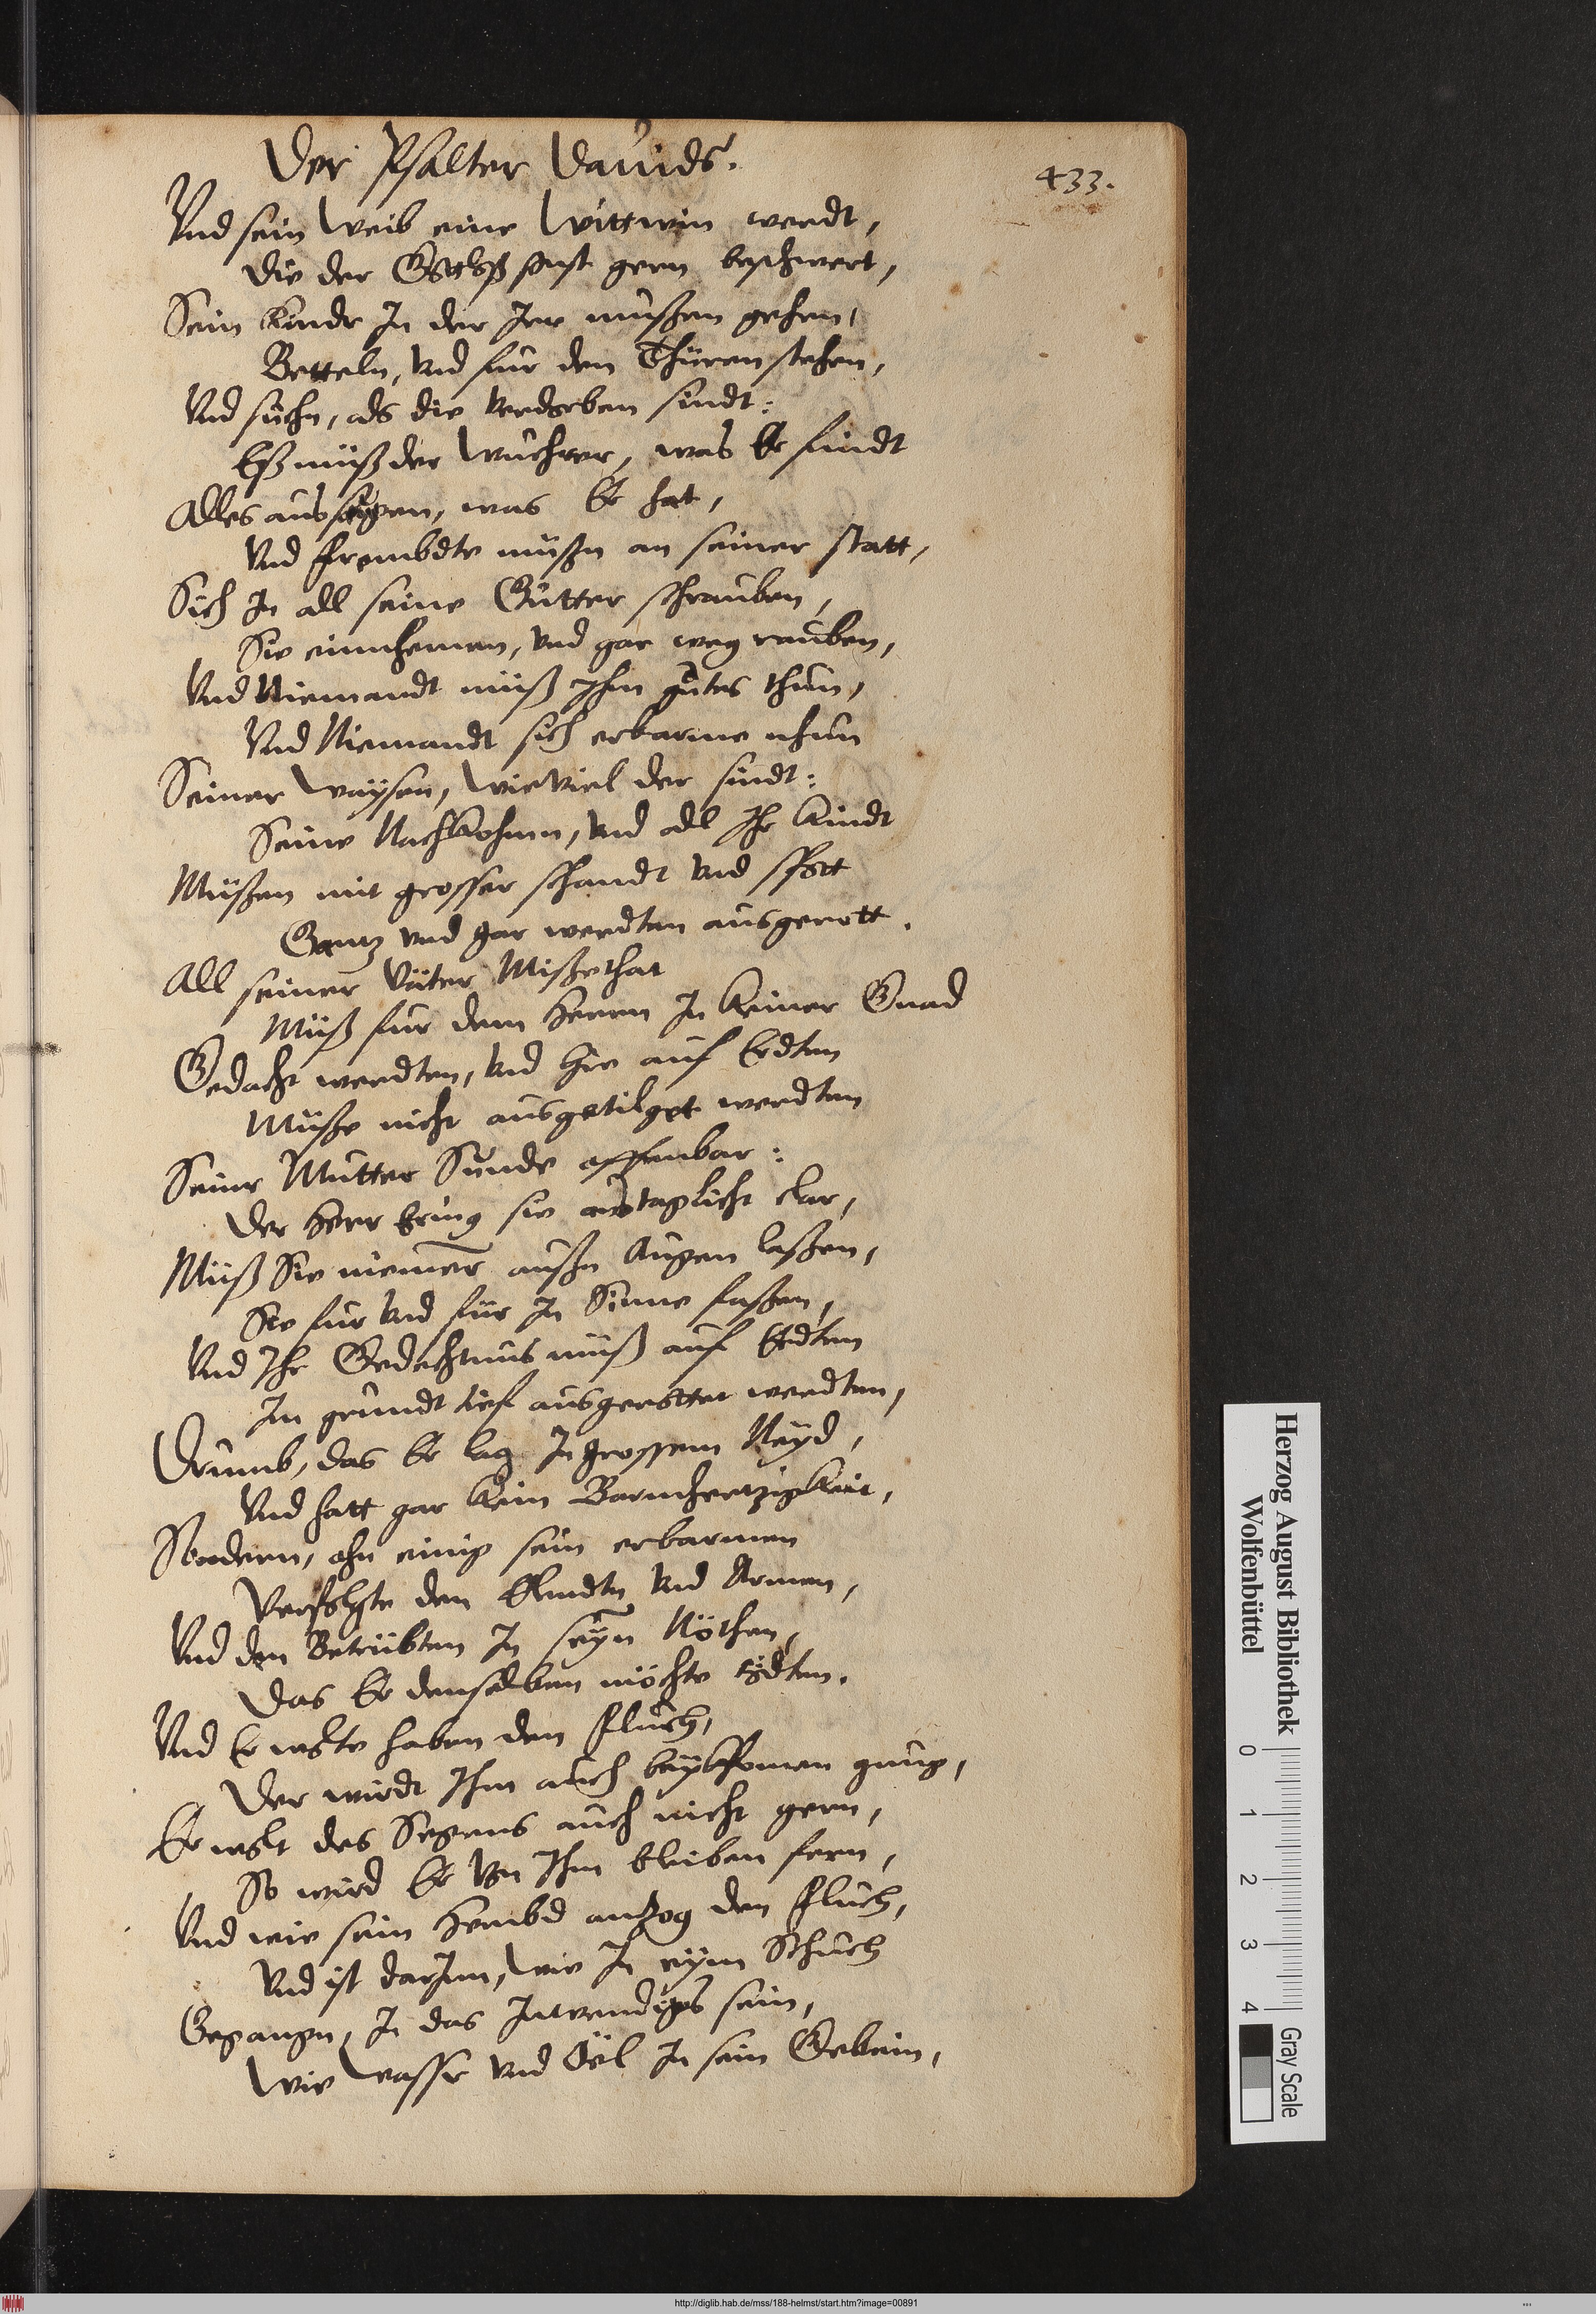 Der Psalter Dauids.
433.
Vnd sein Weib eine Wittwin werdt,
Die der Gottloß sonst gern beschwert,
Sein Kinde In der Irre mußen gehen,
Betteln, vnd fur den Thüren stehen,
Vnd suchn, als die verdorben sindt:
Eß muß der Wuchrer, was Er findt
Alles aussaugen, was Er hat,
Vnd frembdte mußn an seiner statt,
Sich In all seine Gütter schrauben,
Sie einnhemen, vnd gar weg rauben,
Vnd Niemandt muß Ihm gutes thun,
Vnd Niemandt sich erbarme nhun
Seiner Waysen, wieviel der sindt:
Seine Nachkohmn, vnd all Ihr Kindt
Mußen mit grosser schandt vnd spott
Gantz vnd gar werdten ausgerott.
All seiner Väter Mißethat
Muß fur dem Herrn In keiner Gnad
Gedacht werdten, vnd hie auf Erdten
Muße nicht ausgetilget werdten
Seinr Mutter Sunde offenbar:
Der Herr bring sie ans taglicht klar,
Muß Sie niemer außn Augen laßen,
Sie fur vnd für In Sinne faßen,
Vnd Ihr Gedechtnus muß auf Erdten
Im grundt tief ausgerottet werdten,
Drumb, das Er lag In grossem Neyd,
Vnd hatt gar kein Barmhertzigkeit,
Sondern, ohn einig sein erbarmen
Verfolgte den Elendtn vnd Armen,
Vnd den Betrübten In seyn Nöthen,
Das Er denselben möchte tödten.
Vnd Er wolte haben den fluch,
Der wirdt Ihm auch beykhomen gnug,
Er wolt des Segens auch nicht gern,
So wird Er von Ihm bleiben fern,
Vnd wie sein Hembd anzog den fluch,
Vnd ist darInn, wie In eym Schuch
Gegangn, In das Inwendigs sein,
Wie Wassr vnd Oel In sein Gebein,
Herzog August Bibliothek
Wolfenbüttel
0 1 2 3 4
Gray Scale
http://diglib.hab.de/mss/188-helmst/start.htm?image=00891